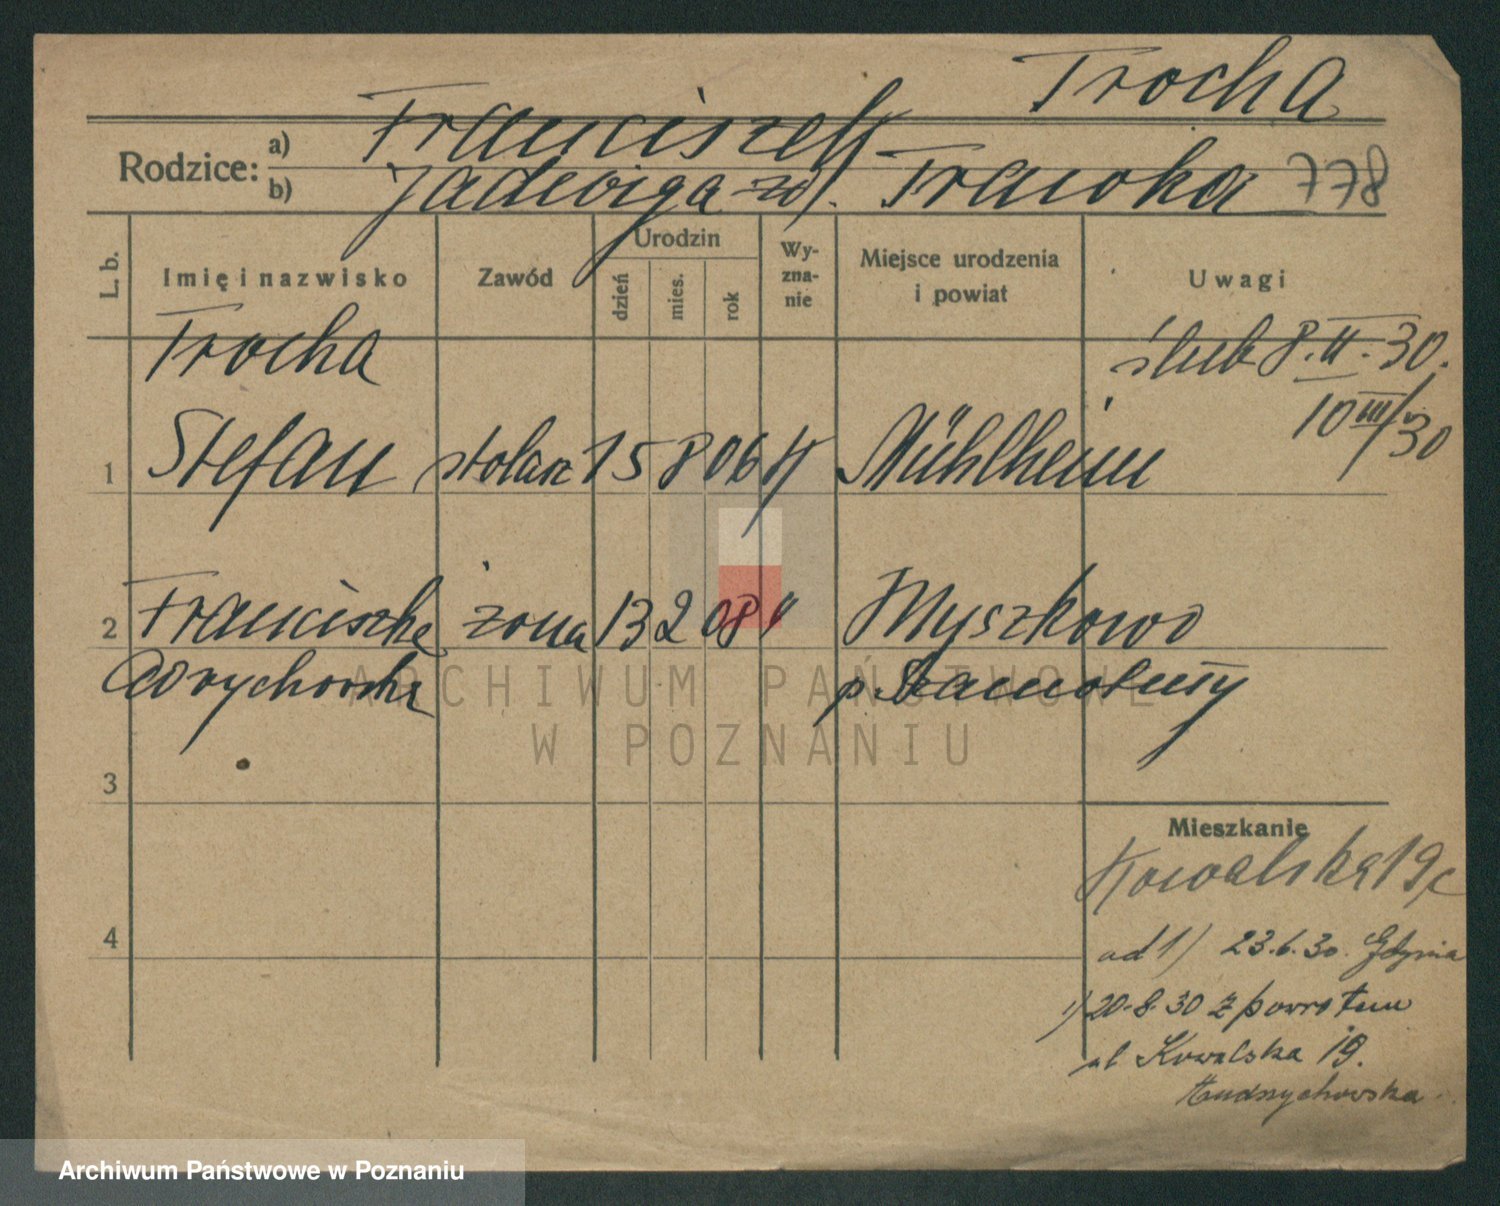 Trocha
Rodzice:
a) Franciszek
b) Jadwiga zd. Trawka 778
L. b.
Imię i nazwisko
Zawód
Urodzin
dzień
mies.
rok
Wy-
zna-
nie
Miejsce urodzenia
i powiat
Uwagi
Trocha
ślub 8.II.30.
10 III/30
1 Stefan stolarz 15 8 06 K Mühlheim
2 Franciszka żona 13 2 08 " Myszkowo
p. Szamotuły
3
4
Mieszkanie
Kowalska 19
ad 1) 23.6.30. Gdynia
1) 20.8.30 z powrotem
ul Kowalska 19.
ARCHIWUM PAŃSTWOWE
W POZNANIU
Archiwum Państwowe w Poznaniu